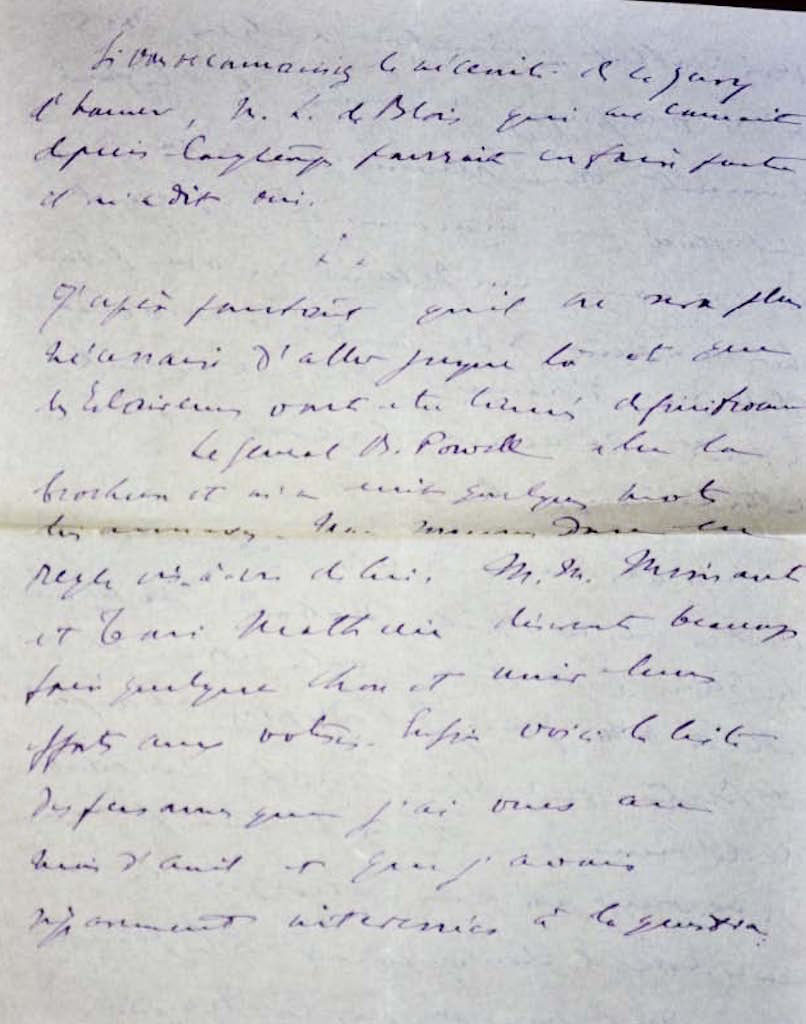 Si vous reconnaissiez la nécessité de ce jury
d'honneur, M. L. de Blois qui me connait
depuis longtemps pourrait en faire partie
il m'a dit oui.
J'espère pourtant qu'il ne sera plus
nécessaire d'aller jusque là et que
les Eclaireurs vont être
Le general B. Powell a lu la
brochure et m'a écrit quelques mots
règle vis-à-vis de lui. M. M.
et désirent beaucoup
faire quelque chose et unir leurs
efforts aux votres. Enfin voici la liste
des personnes que j'ai vues au
mois d'avril et que j'avais
intéressées à la question.